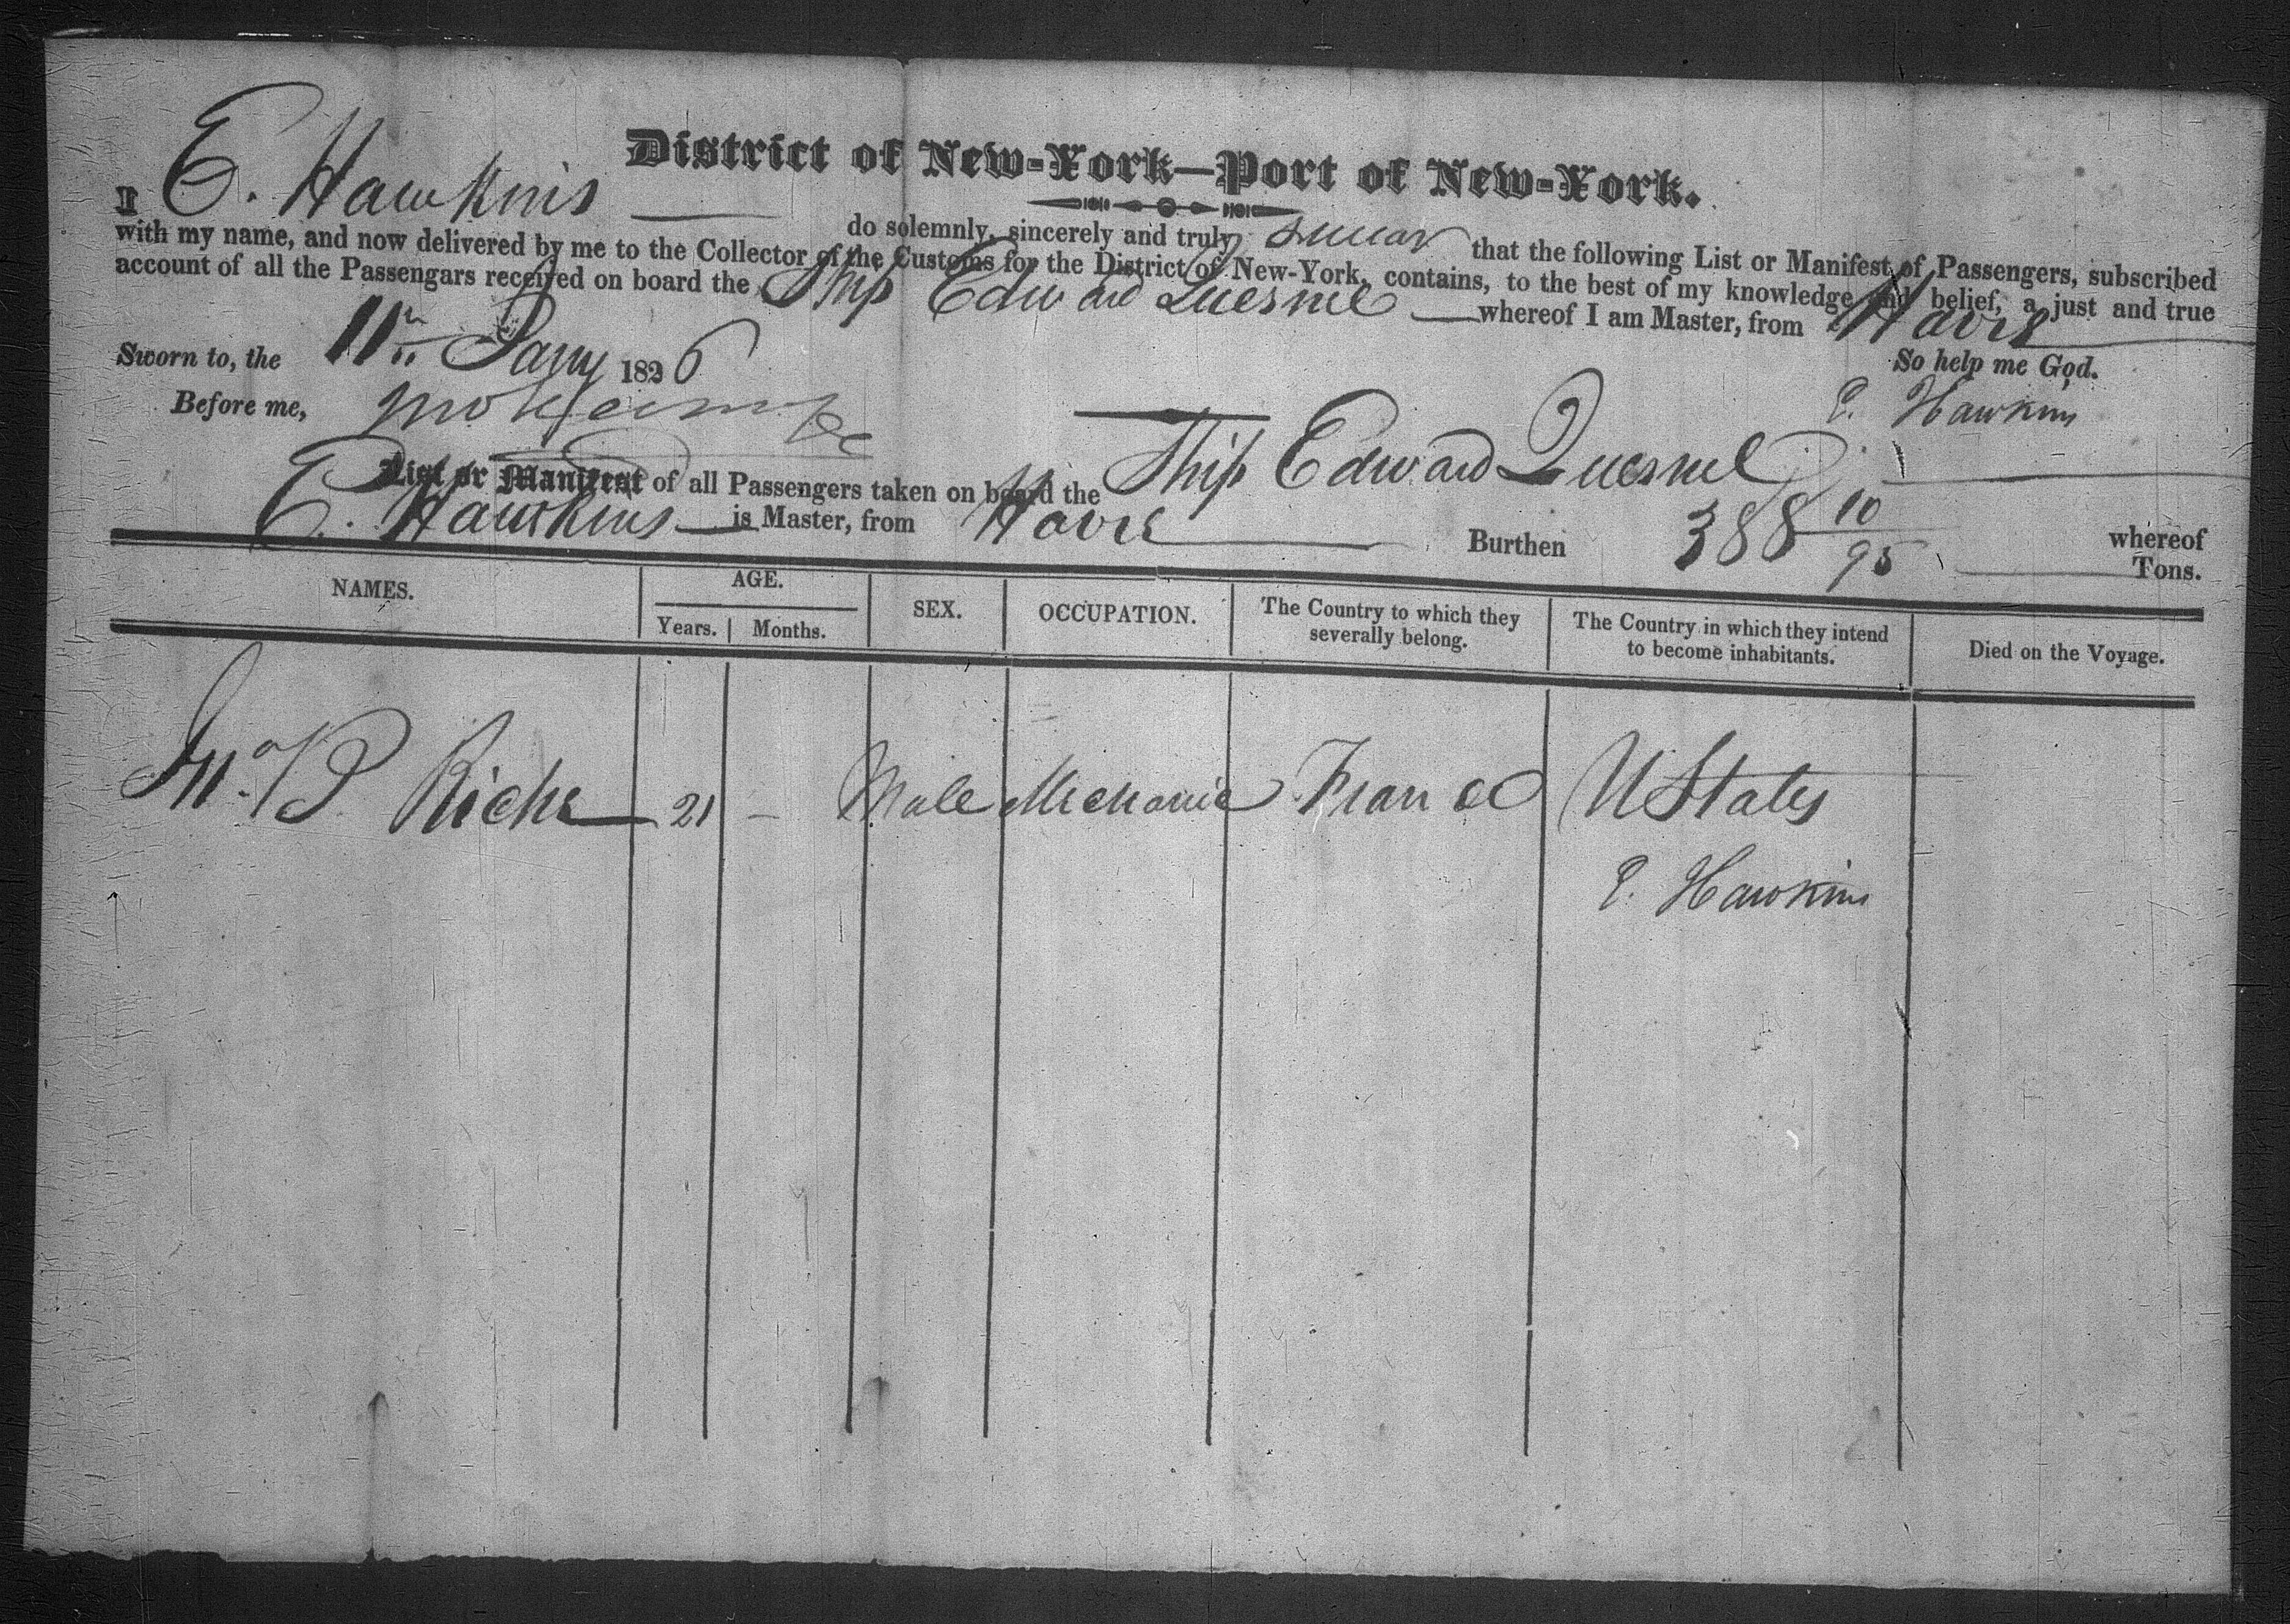 District of New-York—Port of New-York.
I E. Hawkins do solemnly, sincerely and truly swear that the following List or Manifest of Passengers, subscribed
with my name, and now delivered by me to the Collector of the Customs for the District of New-York, contains, to the best of my knowledge and belief, a just and true
account of all the Passengars received on board the Ship Edward Quesnel whereof I am Master, from Havre
Sworn to, the 11th Jany 1826 So help me God.
Before me, E. Hawkins
List or Manifest of all Passengers taken on board the Ship Edward Quesnel whereof
E. Hawkins is Master, from Havre Burthen 388 10/95 Tons.
NAMES. AGE. Years. Months. SEX. OCCUPATION. The Country to which they severally belong. The Country in which they intend to become inhabitants. Died on the Voyage.
Riche 21 — Male Mechanic France U States
E. Hawkins